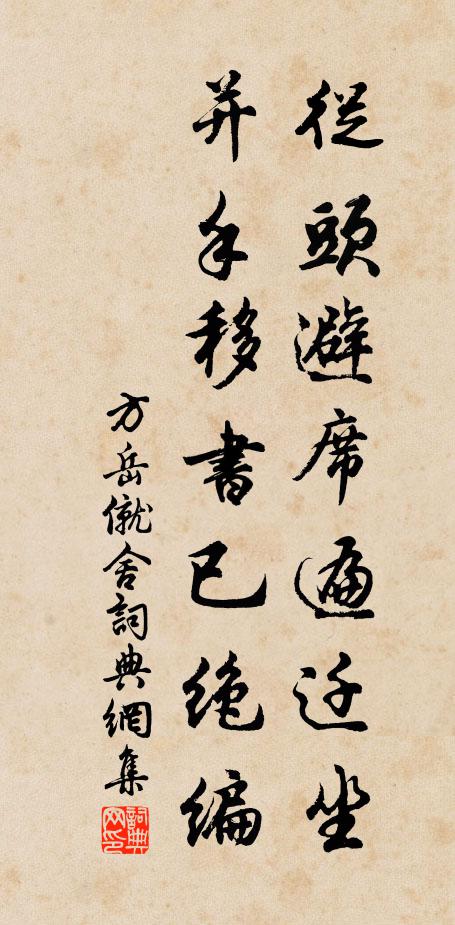 從頭避席遍迁坐
并手移書已絶编
方岳僦舍詞典網集
詞典网印